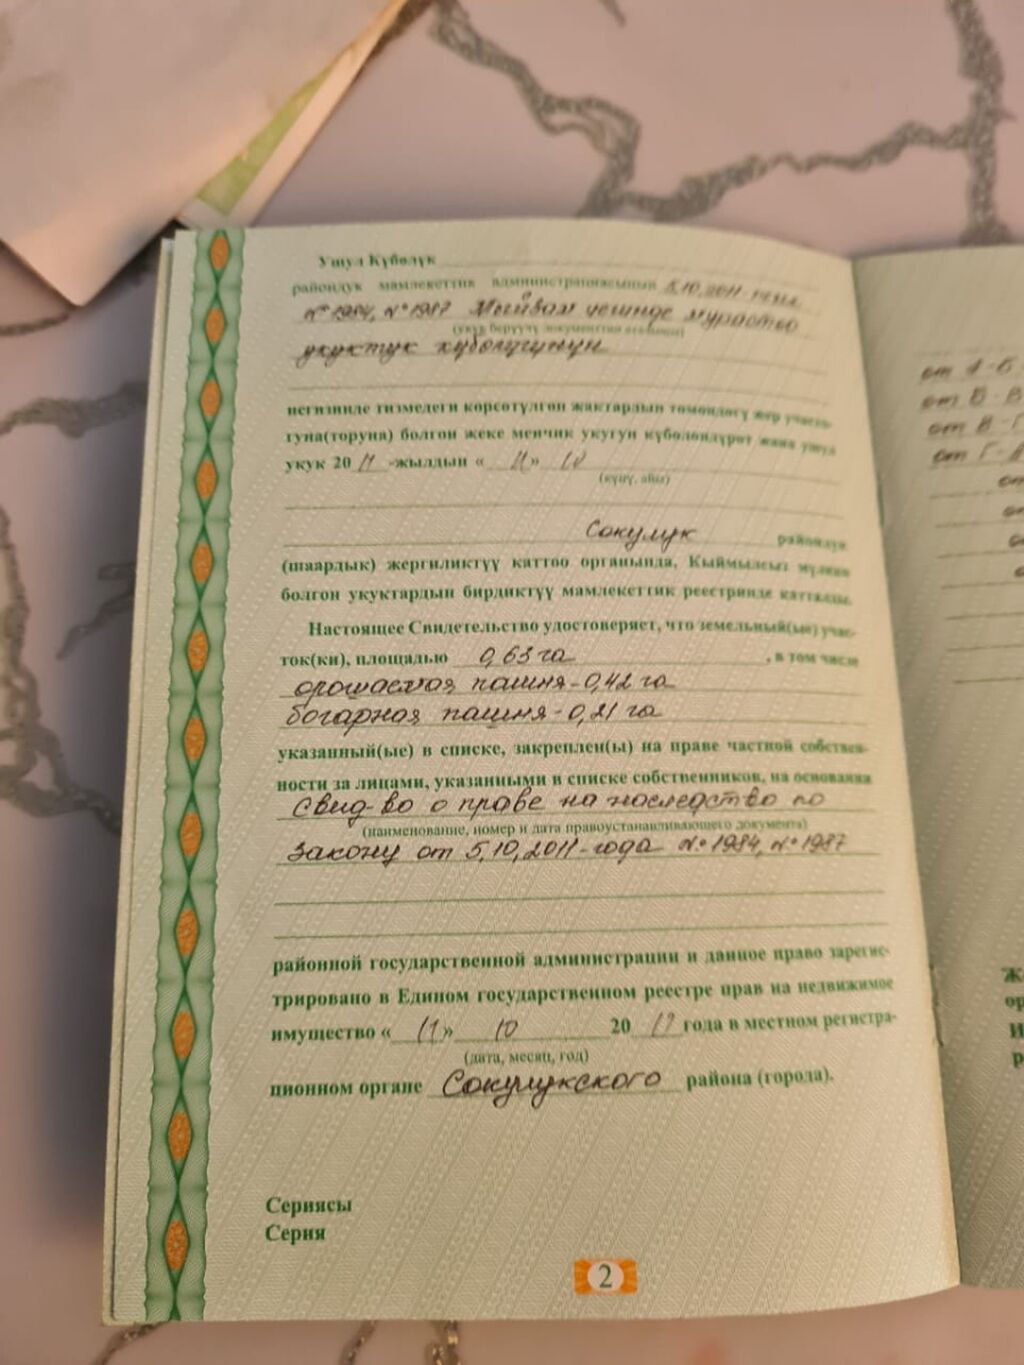 Ушул Күбөлүк
райондук мамлекеттик администрациянын 5,10,2011-
№1984, №1987 Мыйзам чегинде мурастоо
(укук берүүчү документтин аталышы)
укуктук күбөлүгүнүн
негизинде тизмедеги көрсөтүлгөн жактардын төмөндөгү жер участо-
гуна(торуна) болгон жеке менчик укугун күбөлөндүрөт жана ушул
укук 20 11 -жылдын « 11» 10
(күнү, айы)
Сокулук райондук
(шаардык) жергиликтүү каттоо органында, Кыймылсыз мүлккө
болгон укуктардын бирдиктүү мамлекеттик реестринде катталды.
Настоящее Свидетельство удостоверяет, что земельный(ые) учас-
ток(ки), площадью 0,63 га , в том числе
орошаемая пашня-0,42 га
богарная пашня-0,21 га
указанный(ые) в списке, закреплен(ы) на праве частной собствен-
ности за лицами, указанными в списке собственников, на основании
свид-во о праве на наследство по
(наименование, номер и дата правоустанавливающего документа)
закону от 5,10,2011-года №1984, №1987
районной государственной администрации и данное право зарегис-
трировано в Едином государственном реестре прав на недвижимое
имущество « 11» 10 20 года в местном регистра-
(дата, месяц, год)
ционном органе Сокулукского района (города).
Сериясы
Серия
2
от А-Б
от Б-В
от В-Г
от Г-
от
от